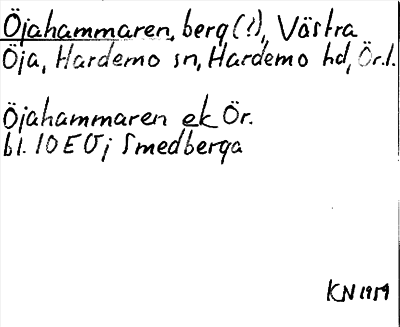 Öjahammaren, berg(!), Västra
Öja, Hardemo sn, Hardemo hd, Ör.l.
Öjahammaren ek Ör.
bl. 10 E Ö j Smedberga
KN 1959